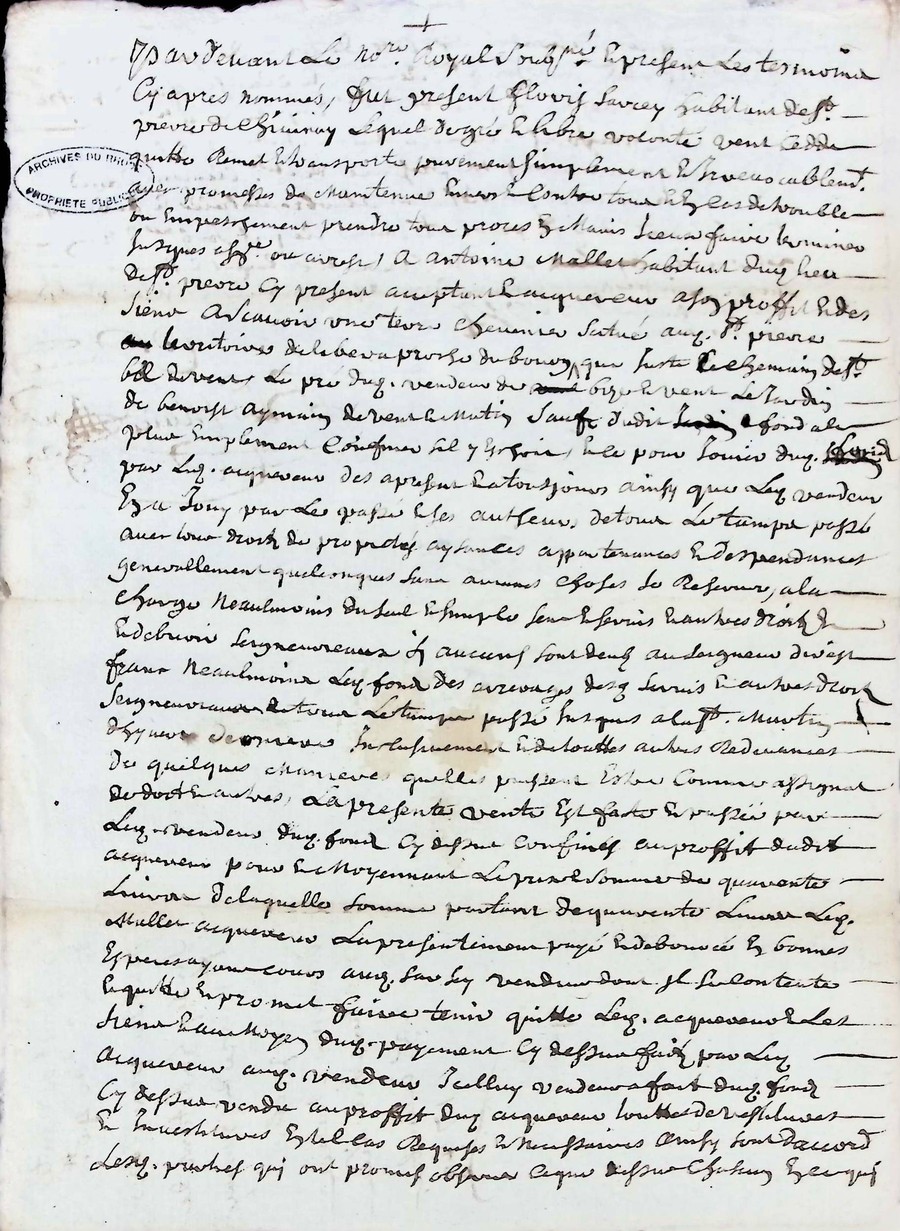 Pardevant Le no.re Royal Soubz.né Et present Les tesmoins
Cy apres nommés, fut present flory sarcey habitant de St.
ARCHIVES DU RHÔNE
PROPRIÉTÉ PUBLIQUE
Lequel de gré et libre volonté vent cedde
quitte Remet et transporte purement simplement et irrevocablemt.
avec promesses de maintenue Envers et Contre tous En cas de trouble
ou Empeschement prendre tous proces En Mains Iceux faire terminer
Jusques a ou arrest, A Antoine Mallet habitant duq. lieu
de St. Cy present acceptant et acquereur a son proffit et des
siens Ascavoir une terre situé auq. St.
territoire de du bourg que Juste le chemin de St.
de vent, Le pré duq. vendeur de bize et vent Le Jardin
de benoist aymain de vent et Matin Sauf dudit fond a le
plus Emplement Confiner sil y Eschoit, et ce pour Jouir duq.
par Leq. acquereur des apresent et a tousjours ainsy que Leq. vendeur
En a Jouy par Le passé et ses autheurs de tous Le temps passé
avec tous droits de proprietés aysances appartenances et despendances
generallement quelconques sans aucunes choses se Reserver, a la
Charge Neaulmoins du seul et simple sens et servis et autres droits
et debvoir seigneureaux sy aucuns sont deub au seigneur direct
franc Neaulmoins Leq. fond des arrerages desq. servis et autres droits
Seigneuraux de tous Le temps passé Jusques a la St. Martin
d'hyver derniere Inclusivement et de touttes autres Redevances
de quelques manieres quelles puissent Estre Comme assignat
de dot et autres, La presente vente Est faitte et passée par
Leq. vendeur duq. fond Cy dessus confinés au proffit dudit
acquereur pour et Moyennant Le prix et somme de quarente
Livres de laquelle somme partant de quarente Livres Leq.
Mallet acquereur La presentement payé et debourcé En bonnes
Especes ayant cours auq. Sarcey vendeur dont Il se contente
et quitte et promet faire tenir quitte Leq. acquereur et Les
siens et au Moyen duq. payement Cy dessus fait par Leq.
acquereur auq. vendeur Icelluy vendeur a fait duq. fond
Cy dessus vendu au proffit duq. acquereur touttes devestitures
et Investitures En tel cas Requises et Necessaires Ainsy sont d'accord
Lesq. parties qui ont promis observer ce que dessus Chascun En ce qui